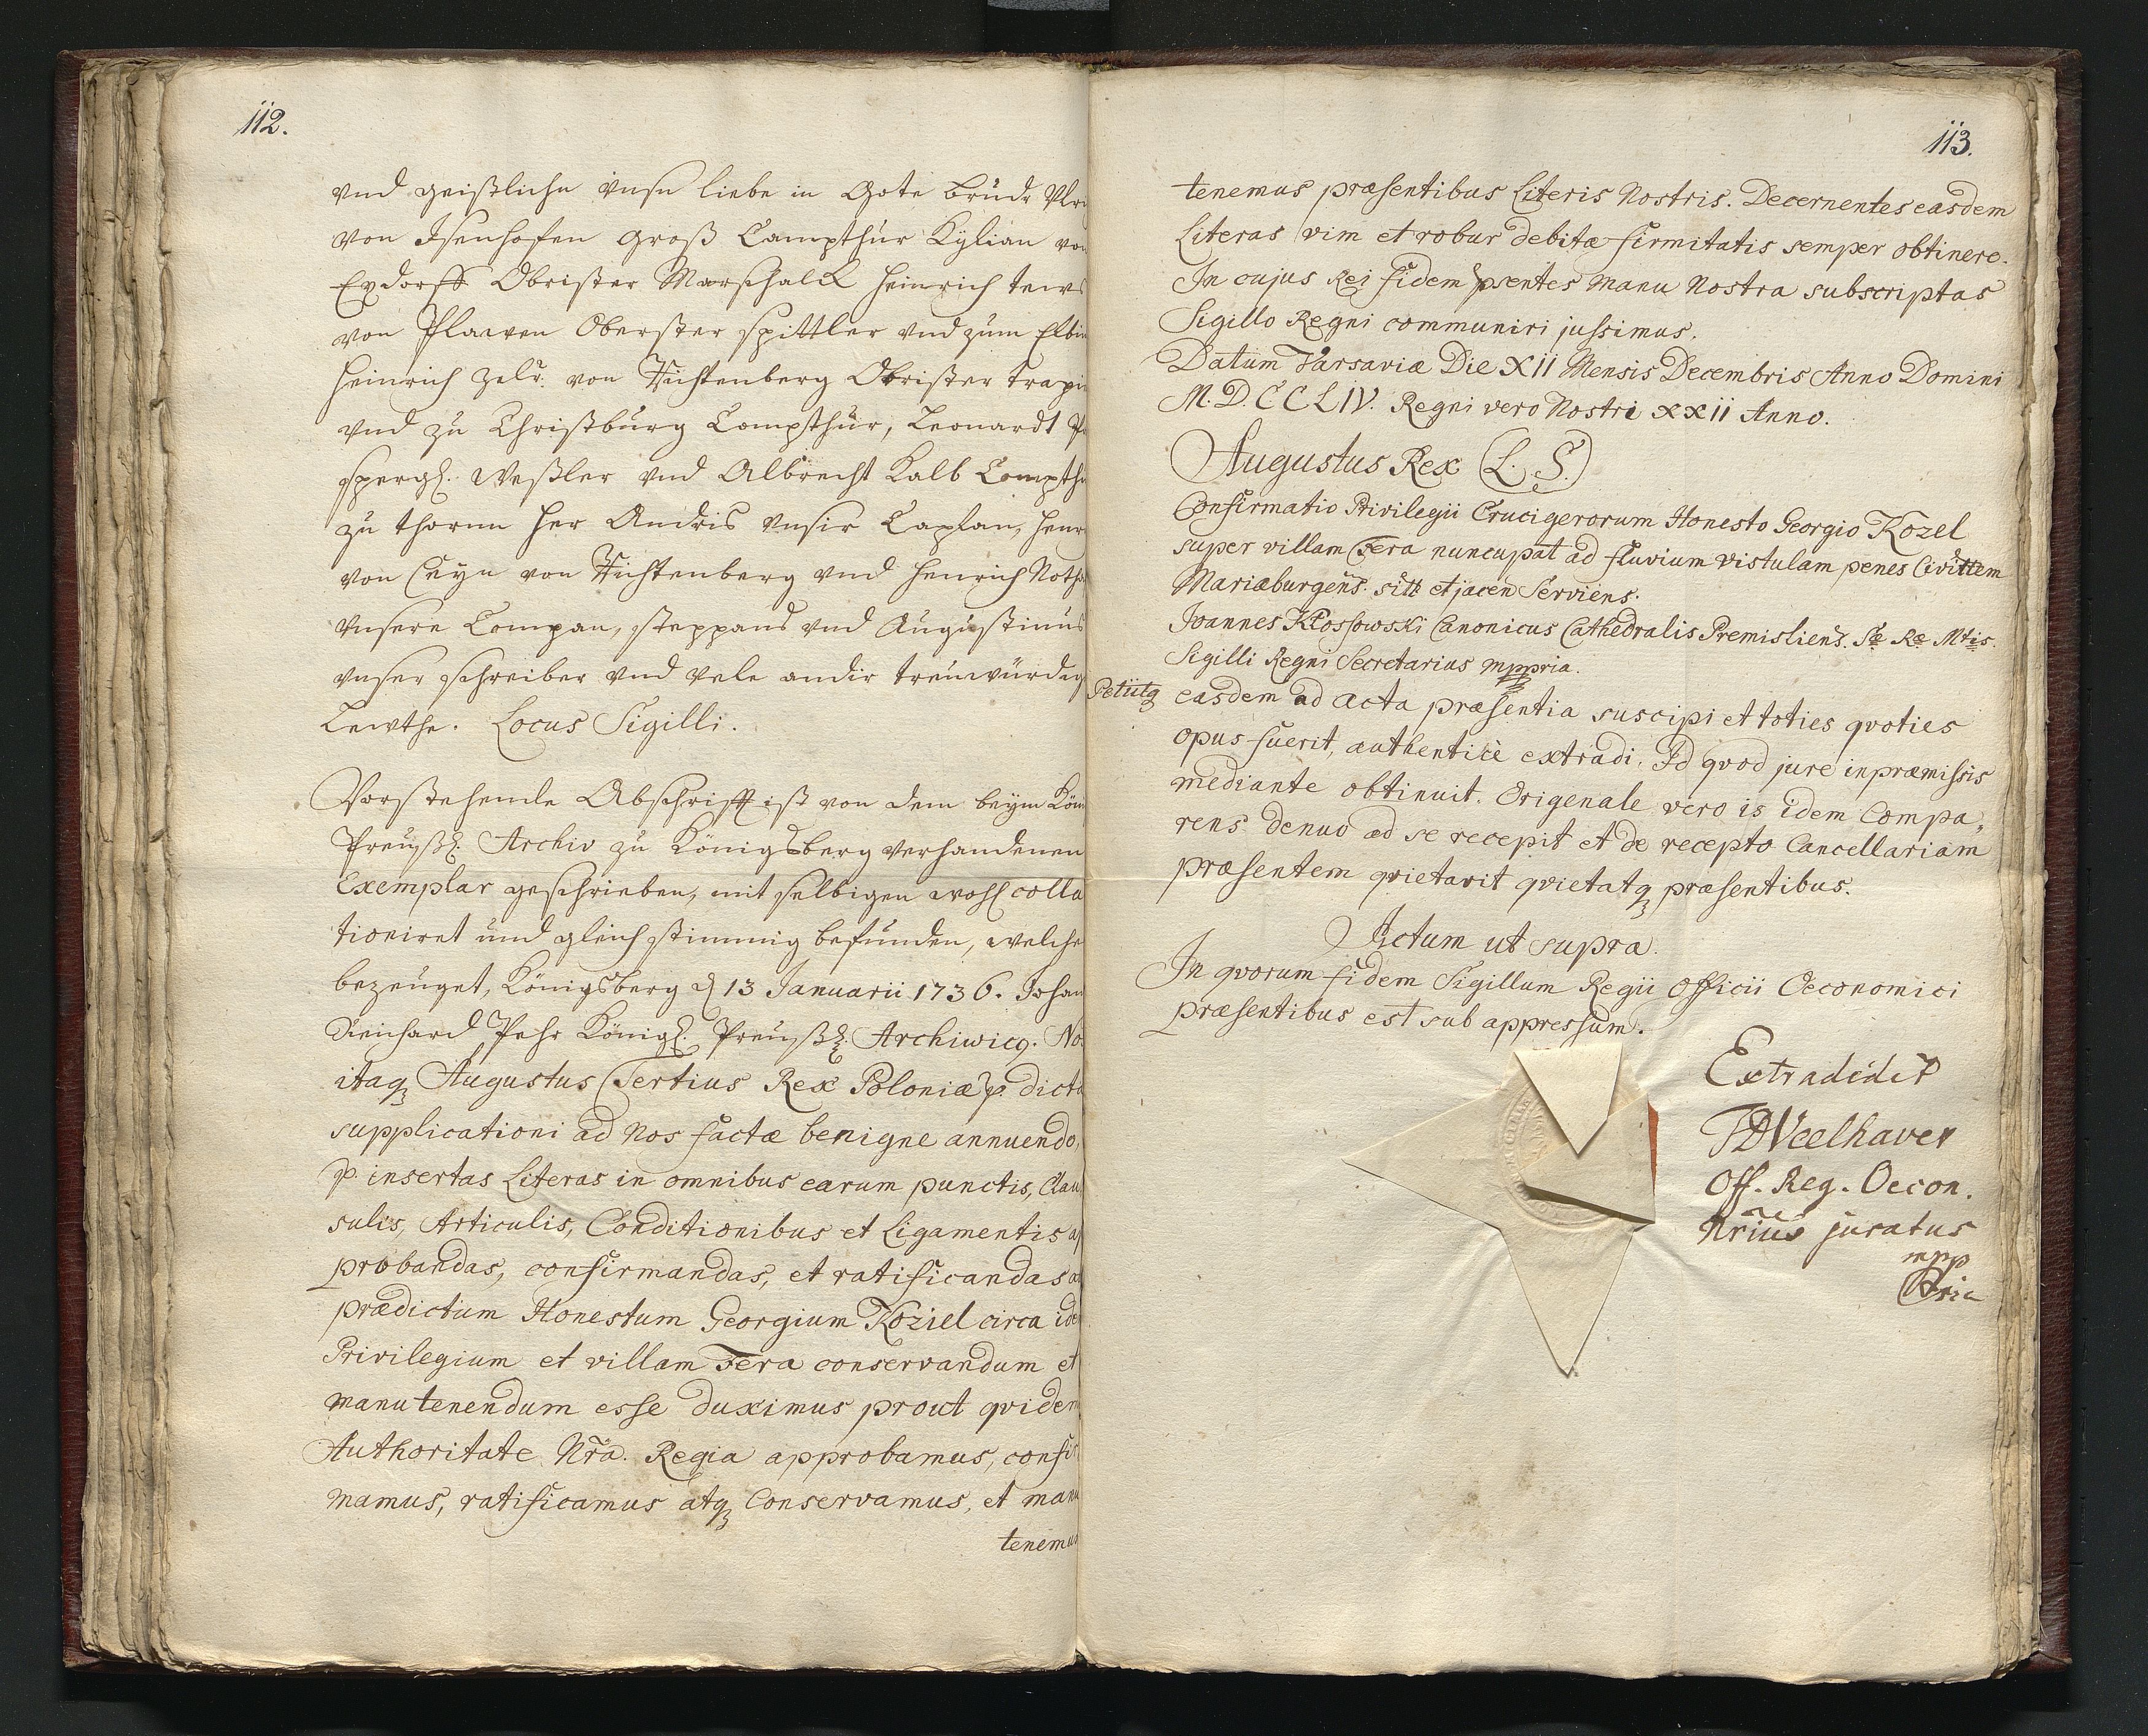 112.
vnd geistliche vnsn liebe in Gote Brüdr Vlr
von Isenhofen Groß Campthür Kÿlian vo
Exdorff Obrister Marschalk Heinrich
von Plawen Oberster spittler vnd zum Elbin
Heinrich von Wichtenberg Obrister trapi
vnd zu Christbürg Compthür, Leonardt
vnd Albrecht Kalb Compth
zu thornn her Andris vnsir Caplan, Henr
von von Wichtenberg vnd Henrich Noth
vnsere Compan, steppand vnd Augustinus
vnser schreiber vnd vele andir treüwürdig
Lewthe. Locus Sigilli.
Vorstehende Abschrifft ist von dem beÿm Kön
Preüß: Archiv zu Königsberg verhandenen
Exemplar geschrieben, mit selbigen wohl colla
tioniret und gleich stimmig befunden, welche
bezeüget, Königsberg d 13 Januarii 1736. Johan
Reinhard Pehr Königl. Preüß: Archiwicq. No
itaq Augustus Tertius Rex Poloniæ p. dicta
supplicationi ad Nos factæ benigne annuendo,
p. insertas Literas in omnibus earum punctis, Clau
sulis, Articulis, Conditionibus et Ligamentis ap
probandas, confirmandas, et ratificandas
prædictum Honestum Georgium Koziel circa ide
Privilegium et villam Fera conservandum et
manutenendum esse duximus prout qvidem
Authoritate Nr̃a. Regia approbamus, confir
mamus, ratificamus atq Conservamus, et manu
tenemus
113.
tenemus præsentibus Literis Nostris. Decernentes easdem
Literas vim et robur debitæ firmitatis semper obtinere.
In cujus Rei fidem pſentes manu Nostra subscriptas
Sigillo Regni communiri jussimus.
Datum Varsaviæ Die XII Mensis Decembris Anno Domini
M. D. C C L I V. Regni vero Nostri x x ii Anno.
Augustus Rex (L. S.)
Confirmatio Privilegii Crucigerorum Honesto Georgio Kozel
super villam Fera nuncupat ad fluvium vistulam penes Civittem
Mariæburgens. sitt et jacen Serviens.
Joannes Kłossowski Canonicus Cathedralis Premisliens. Sæ Ræ Mtis.
Sigilli Regni Secretarius mppria.
Petiitq easdem ad acta præsentia suscipi et toties qvoties
opus fuerit, authenticè extradi. Id qvod jure in præmissis
mediante obtinuit. Origenale vero is idem Compa,,
rens denuo ad se recepit et de recepto Cancellariam
præsentem qvietavit qvietatq præsentibus.
Actum ut supra.
In qvorum fidem Sigillum Regii Officii Oeconomici
præsentibus est sub appressum.
Extradidit
Off. Reg. Oecon.
Nrius juratus
mpp
ria